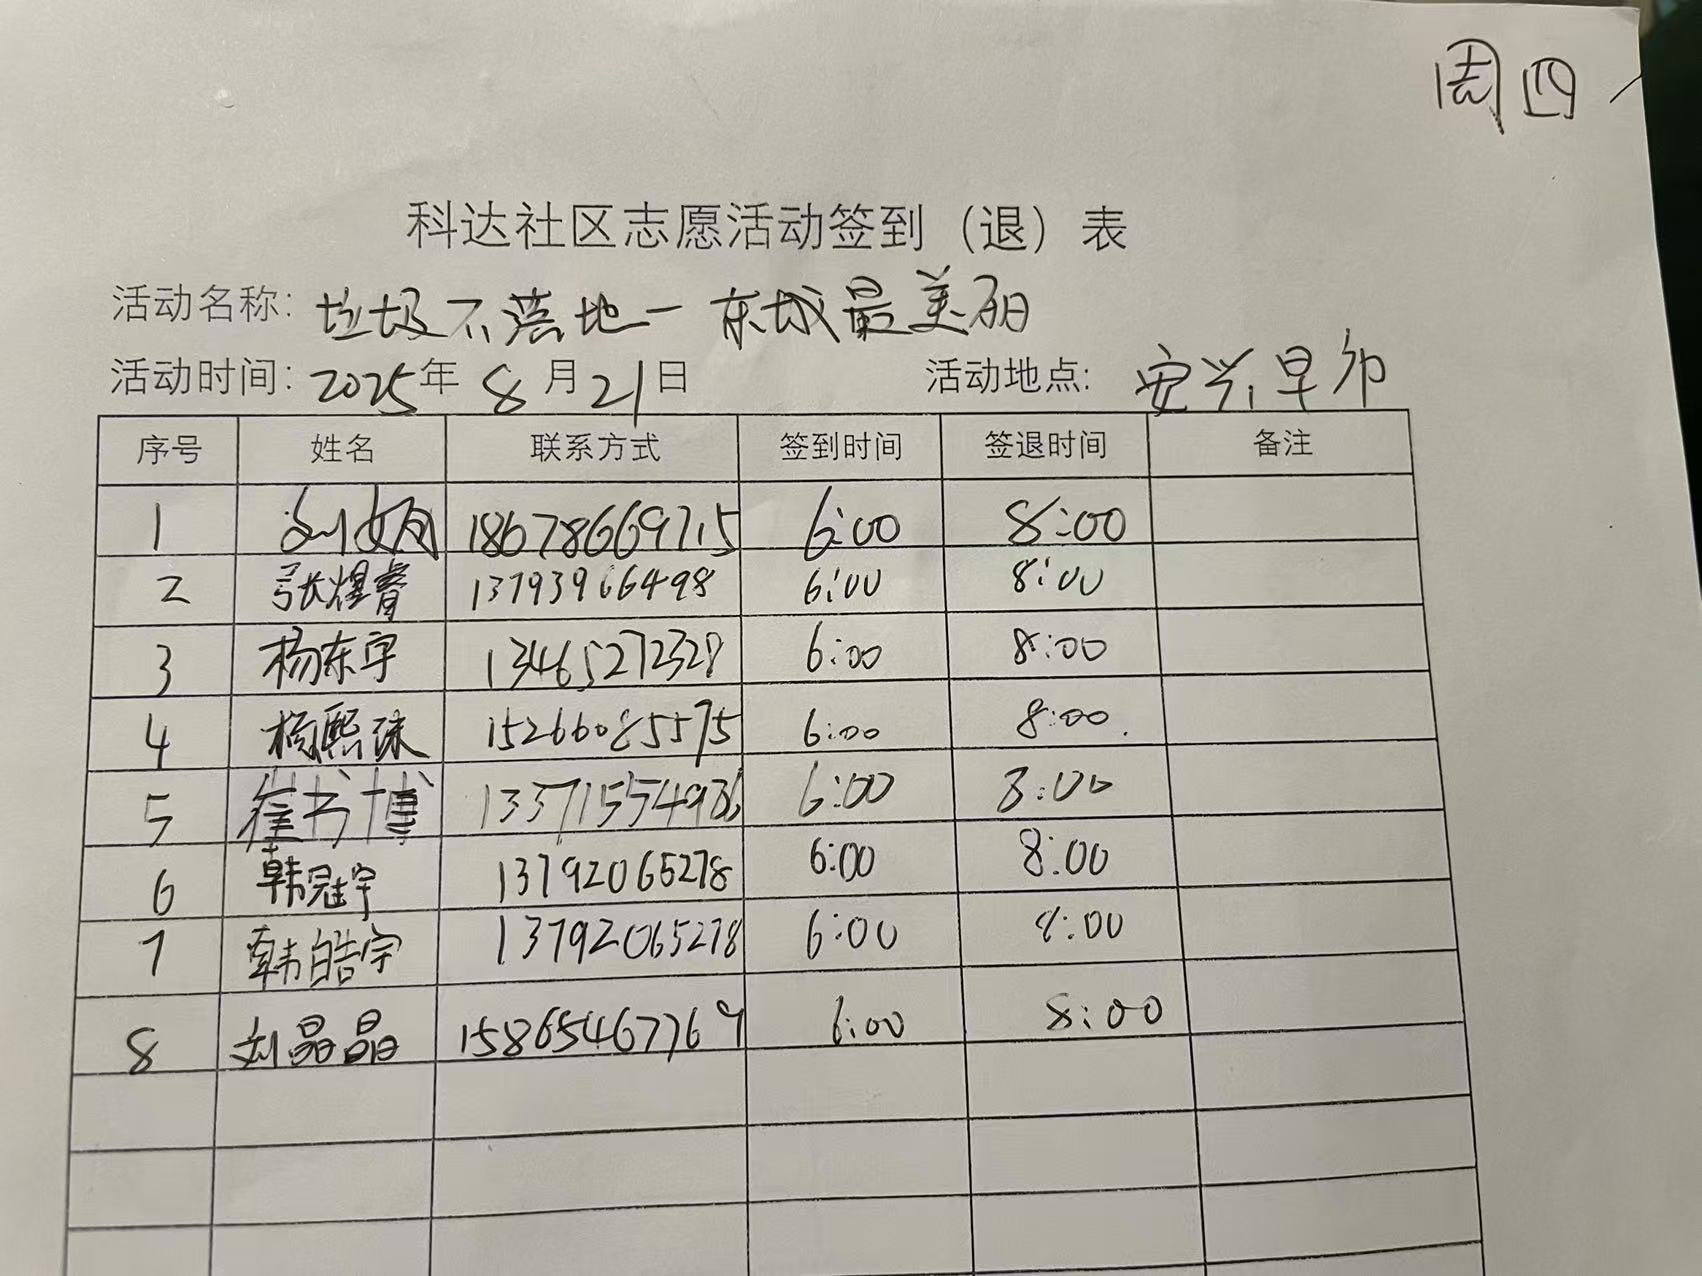 周四
科达社区志愿活动签到（退）表
活动名称: 垃圾不落地一东城最美丽
活动时间: 2025年 8月21日 活动地点: 安兴早市
序号 姓名 联系方式 签到时间 签退时间 备注
1 刘娴 18678669715 6:00 8:00
2 张煜睿 13793966498 6:00 8:00
3 杨东宇 13465272328 6:00 8:00
4 杨熙珠 15266085575 6:00 8:00.
5 崔书博 13371554936 6:00 8:00
6 韩冠宇 13792065278 6:00 8:00
7 韩皓宇 13792065278 6:00 8:00
8 刘晶晶 15865467769 6:00 8:00